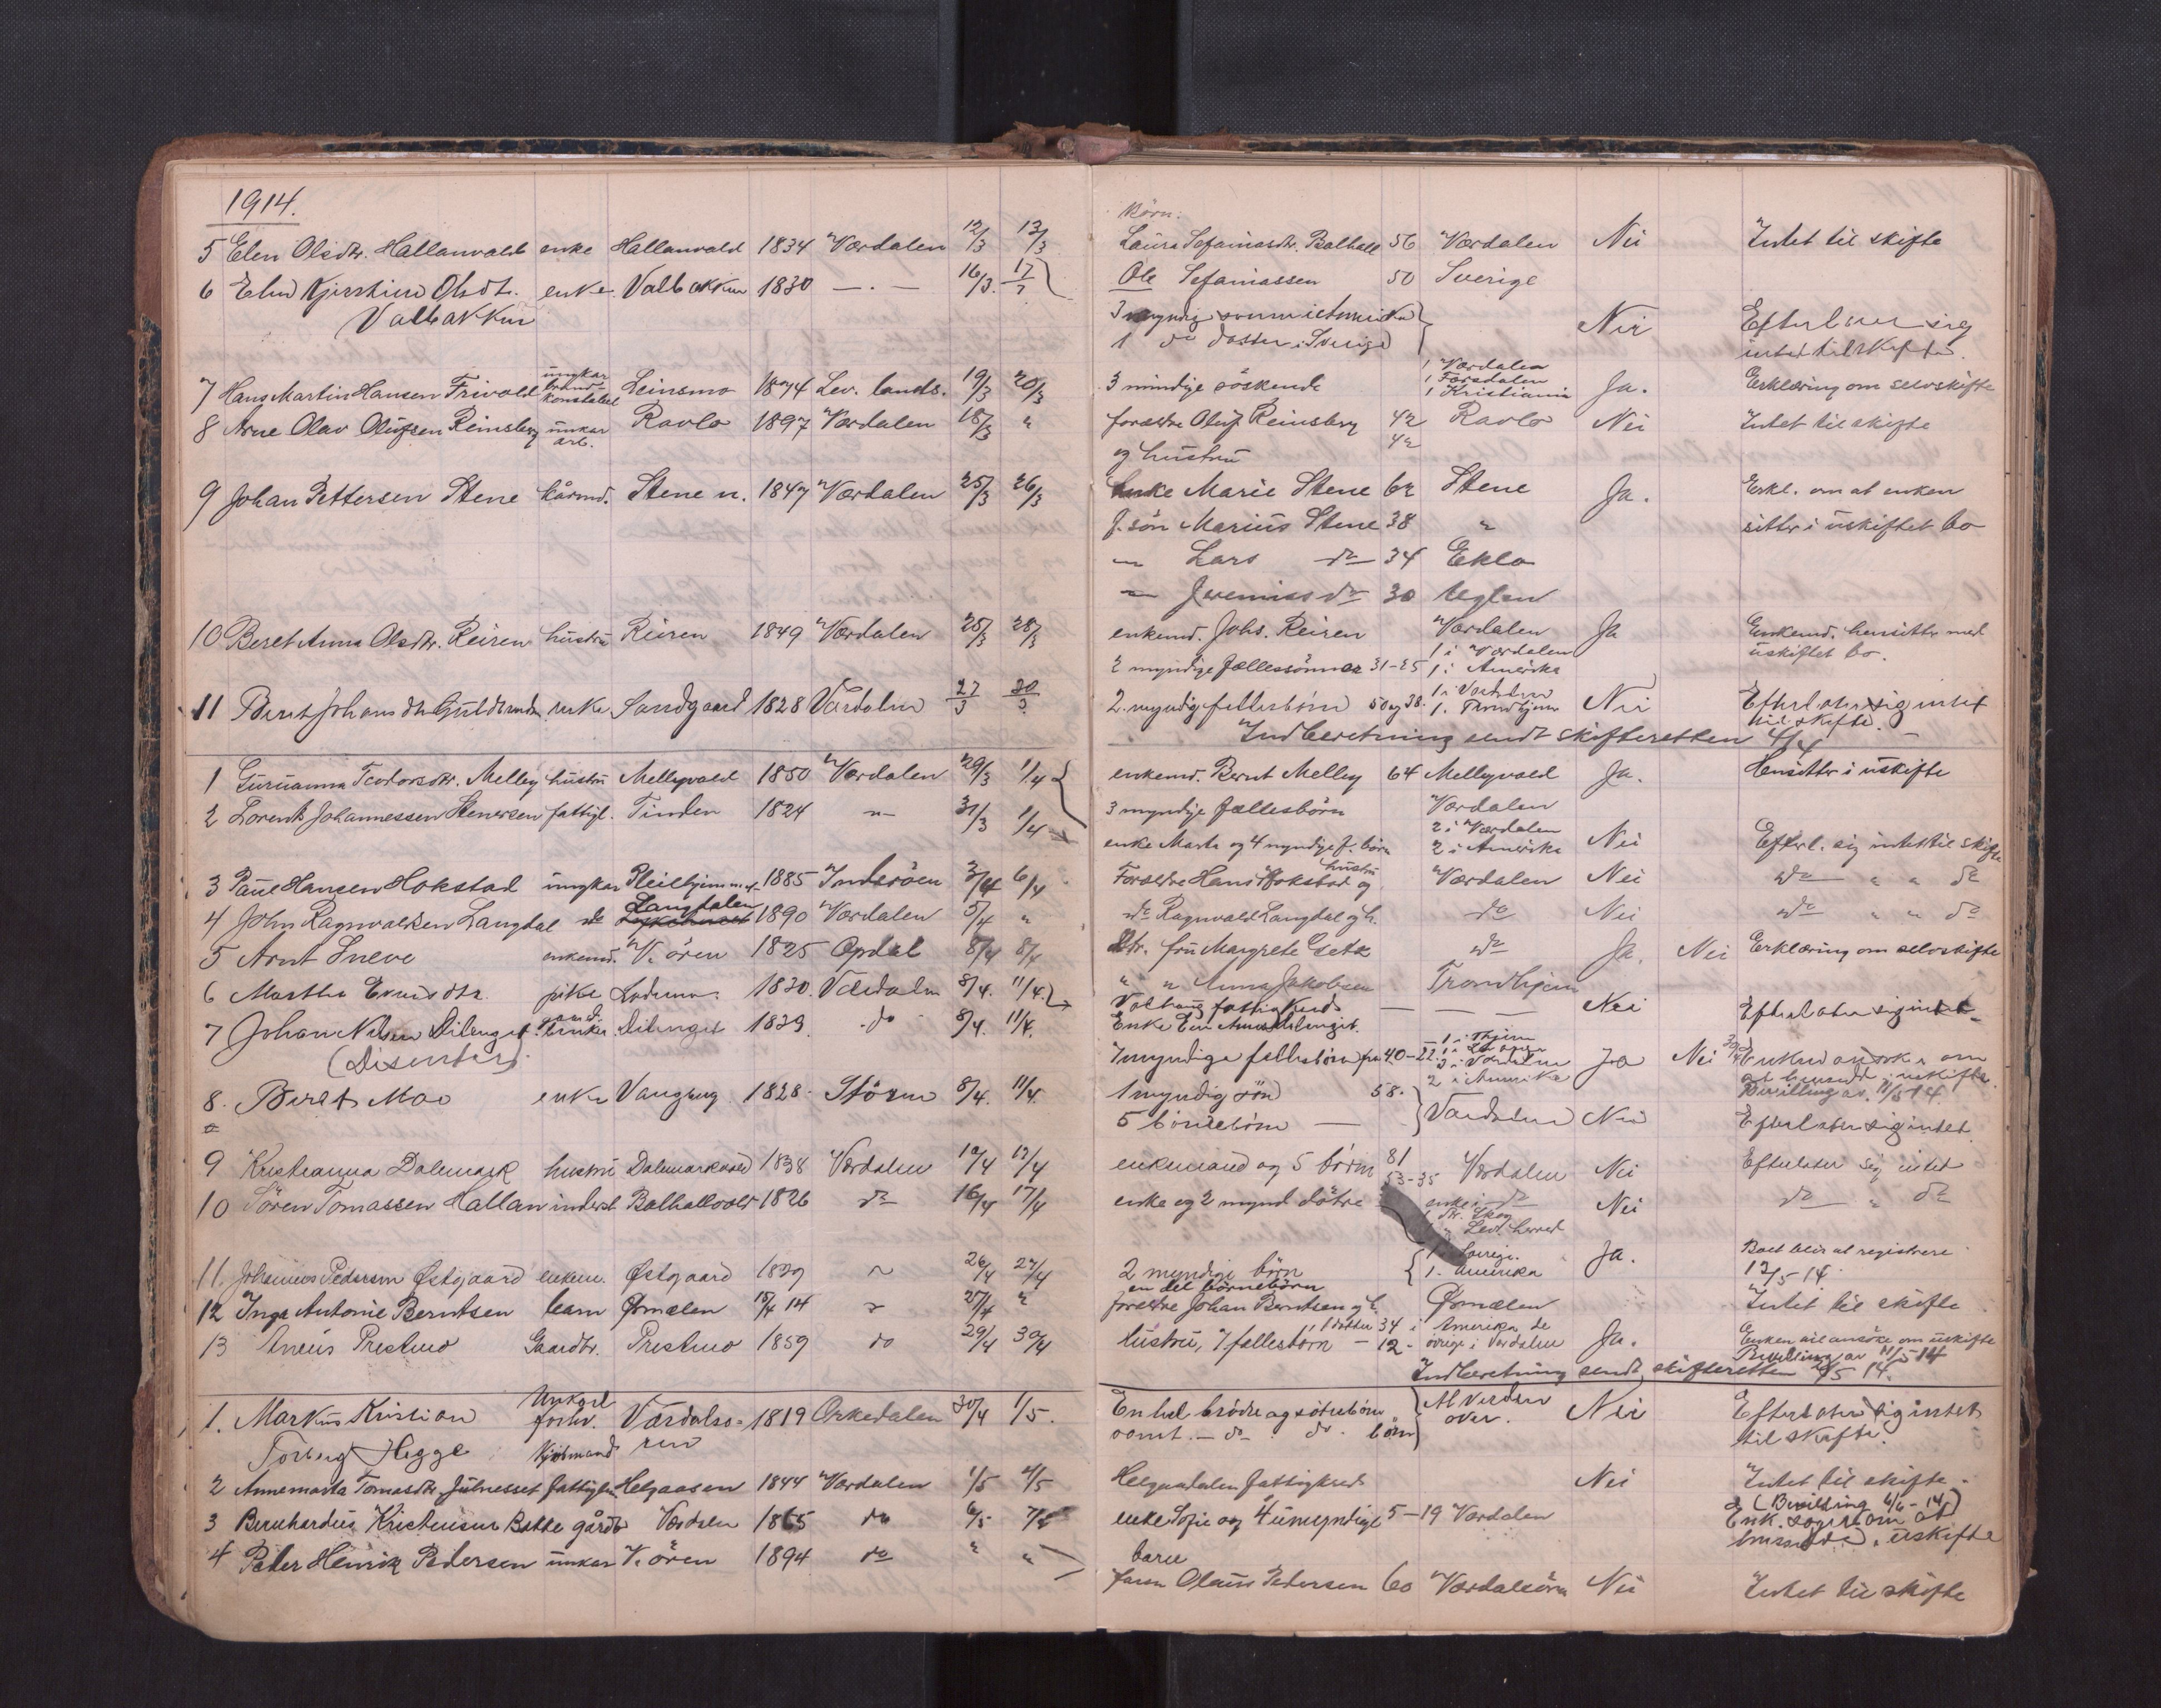 1914.
Börn:
5 Elen Olsdtr. Hallanvald enke Hallanvald 1834 Værdalen 12/3 13/3 Laura Sefaniasdtr. Balhall 56 Værdalen Nei Intet til skifte
6 Elen Kjerstine Olsdt. enke. Valbakken 1830 — . — 16/3. 17/3 Ole Sefaniassen 50 Sverige
Valbakken 3 myndig sønner i Amerika Nei Efterlater sig
1 do datter i Sverige intet til skifte.
ungkar 1 Værdalen
7 Hans Martin Hansen Trivold brand- Leinsmo 1874 Lev. lands. 19/3 20/3 3 mindige söskende 1 Færsdalen Ja. Erklæring om selvskifte
konstabel 1 Kristiania
8 Arne Olav Olufsen Reinsberg unkar Ravlo 1897 Værdalen 18/3 " forældre Oluf Reinsberg 42 Ravlo Nei Intet til skifte
arb. og hustru 42
9 Johan Pettersen Stene kårmd. Stene n. 1847 Værdalen 25/3 26/3 Enke Marie Stene 62 Stene Ja. Erkl. om at enken
f. sön Marius Stene 38 " sitter i uskiftet bo
— Lars do 34 Eklo
— Jeremias do 30 Ueglen
10 Beret Anna Olsdtr. Reiren hustru Reiren 1849 Værdalen 25/3 28/3 enkemd. Johs. Reiren Værdalen Ja Enkemd. hensitter med
2 myndige fællessønner 31-25 1 i Værdalen uskiftet bo.
1 i Amerika
11 Beret Johansdtr enke Sandgaard 1828 Værdalen 27/3 30/3 2. myndig fellesbørn 50 og 38. 1 i Værdalen Nei Efterlater sig intet
1. Trondhjem til skifte.
Indberetning sendt skifteretten 4/4
1 Guruanna Teodorsdtr. Melby hustru Melbyvald 1850 Værdalen 29/3 1/4 enkemd. Bernt Melby 64 Melbyvald Ja. Hensitter i uskifte
2 Lorents Johannessen Stenersen fattigl. Tinden 1824 " 31/3 1/4 3 myndige fællesbörn Værdalen
enke Marta og 4 myndige f. børn 2 i Værdalen Nei Efterl. sig intet til skifte
2 i Amerika
hustru
3 Paul Hansen Hokstad ungkar Pleiehjemmet 1885 Inderöen 3/4 6/4 Forældre Hans Hokstad og Værdalen Nei do " " do
Langdalen
4 John Ragnvaldsen Langdal do 1890 Værdalen 5/4 " do Ragnvald Langdal og h. do Nei do " " do
5 Arnt Sneve enkemd. V. ören 1825 Opdal 8/4 8/4 Dtr. fru Margrete do Ja. Nei Erklæring om selvskifte
6 Martha pike 1830. Værdalen 8/4. 11/4. " " Anna Jakobsen Trondhjem
Volhaug fattigkreds — — — Nei Efterlater sig intet
7 Johan Nilsen Dilenget Dilenget 1839 do 8/4. 11/4. Enke Dilenget.
(Disenter). 7 myndige fellesbørn fra 40-22. 1 i Thjem Ja Nei Enken ansøker om
3 i Værdalen
2 i Amerika at hensidde i uskifte
Bevilling av 11/5 14.
8. Beret Moe enke Vangberg 1828. Stören 8/4. 11/4. 1 myndig søn 58. Værdalen Nei Efterlater sig intet
5 børnebørn —
9 Kristianna Dalemark hustru Dalemarkvald 1838 Værdalen 10/4 13/4 enkemand og 5 børn 81 53-35 Værdalen Nei Efterlater sig intet
10 Sören Tomassen Hallan inderst Balhallvald 1826 do 16/4 17/4 enke og 2 mynd døtre enke i do Nei do " do
1 dtr. Skogn
1 " Lev. herred
11. Johannes Pedersen Østgaard enkem. Østgaard 1829 " 26/4 27/4 2 myndige børn 1 i Sverige. Ja. Boet blir at registrere
en del börnebörn 1. Amerika 12/5 14.
12 Inga Antonie Berntsen barn Ørmælen 15/4 14 " 27/4 " forældre Johan Berntsen og h. Ørmælen Intet til skifte
1 datter 34 i Amerika, de
13 Aneus Prestmo Gaardbr. Prestmo 1859 do 29/4 30/4 hustru, 7 fellesbørn — 12 - övrige i Værdalen Ja. Enken vil ansöke om uskifte
Bevilling av 11/5 14
Indberetning sendt skifteretten 4/5 14.
1. Markus Kristian Unkarl Værdalsö- 1819 Orkedalen 30/4 1/5. En hel brödre og søstrebørn Al verden Nei Efterlater sig intet
Torberg Hegge forhv. ren samt — do — do. børn over. til skifte.
Kjøbmand
2 Annemarta Tomasdtr. Julnesset fattiglem Helgaasen 1844 Værdalen 1/5 4/5 Helgaadalen fattigkreds Nei Intet til skifte.
(Bevilling 6/6 - 14)
3 Bernhardus Kristensen Batte gårdb. Værdalen 1865 do 6/5 7/5 enke Sofie og 4 umyndige 5-19 Værdalen Enk. søger om at
barn hensidde i uskifte
4 Peter Henrik Pedersen unkar V. ören 1894 do " " faren Olaus Pedersen 60 Værdalsören Nei Intet til skifte